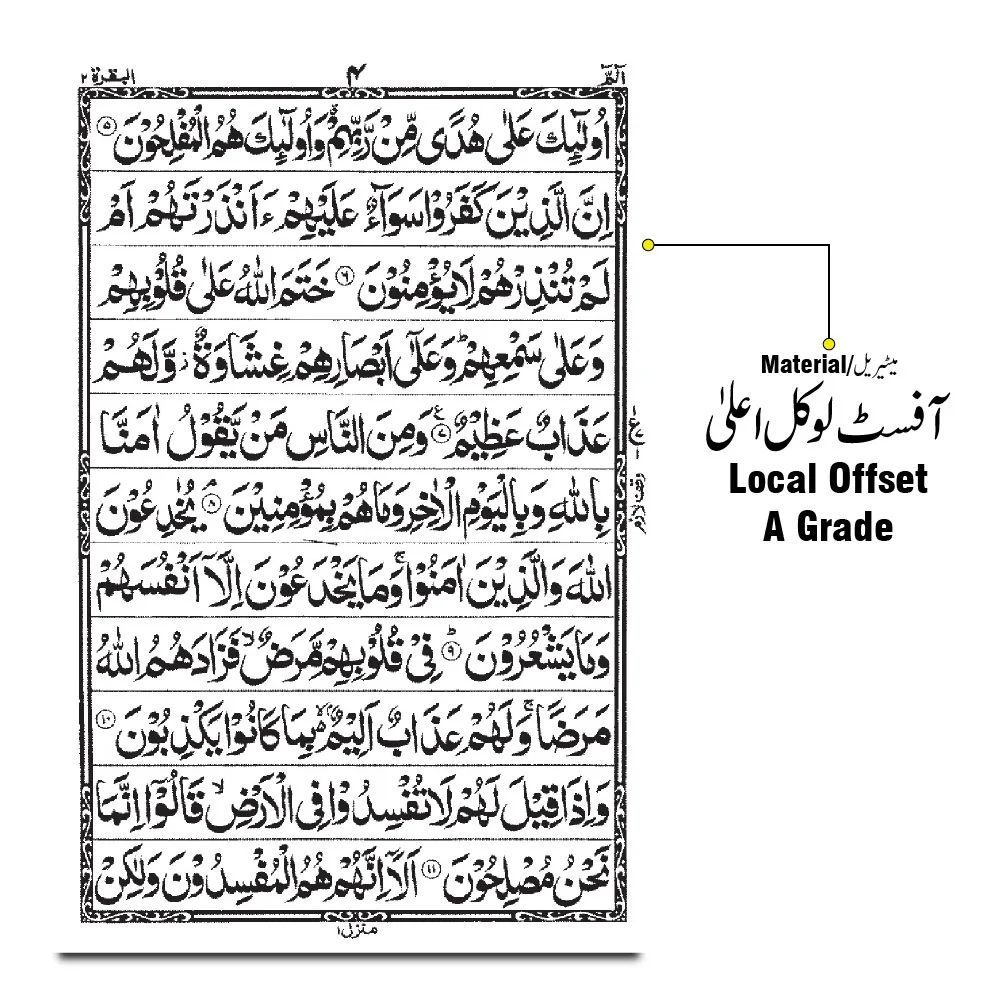 الٓمّٓ ۴ البقرة ۲
اُولٰٓئِكَ عَلٰى هُدًى مِّنْ رَّبِّهِمْ ۗ وَاُولٰٓئِكَ هُمُ الْمُفْلِحُوْنَ ۝۵
اِنَّ الَّذِيْنَ كَفَرُوْا سَوَآءٌ عَلَيْهِمْ ءَاَنْذَرْتَهُمْ اَمْ
لَمْ تُنْذِرْهُمْ لَا يُؤْمِنُوْنَ ۝۶ خَتَمَ اللّٰهُ عَلٰى قُلُوْبِهِمْ
وَعَلٰى سَمْعِهِمْ ؕ وَعَلٰٓى اَبْصَارِهِمْ غِشَاوَةٌ ؗ وَّلَهُمْ
عَذَابٌ عَظِيْمٌ ۝۷ ع وَمِنَ النَّاسِ مَنْ يَّقُوْلُ اٰمَنَّا
بِاللّٰهِ وَبِالْيَوْمِ الْاٰخِرِ وَمَا هُمْ بِمُؤْمِنِيْنَ ۝۸ يُخٰدِعُوْنَ
اللّٰهَ وَالَّذِيْنَ اٰمَنُوْا ۚ وَمَا يَخْدَعُوْنَ اِلَّاۤ اَنْفُسَهُمْ
وَمَا يَشْعُرُوْنَ ؕ۝۹ فِىْ قُلُوْبِهِمْ مَّرَضٌ ۙ فَزَادَهُمُ اللّٰهُ
مَرَضًا ۚ وَلَهُمْ عَذَابٌ اَلِيْمٌ ۢ ۙ بِمَا كَانُوْا يَكْذِبُوْنَ ۝۱۰
وَاِذَا قِيْلَ لَهُمْ لَا تُفْسِدُوْا فِى الْاَرْضِ ۙ قَالُوْٓا اِنَّمَا
نَحْنُ مُصْلِحُوْنَ ۝۱۱ اَلَاۤ اِنَّهُمْ هُمُ الْمُفْسِدُوْنَ وَلٰكِنْ
منزل ۱
Material/میٹیریل
آفسٹ لوکل اعلیٰ
Local Offset
A Grade